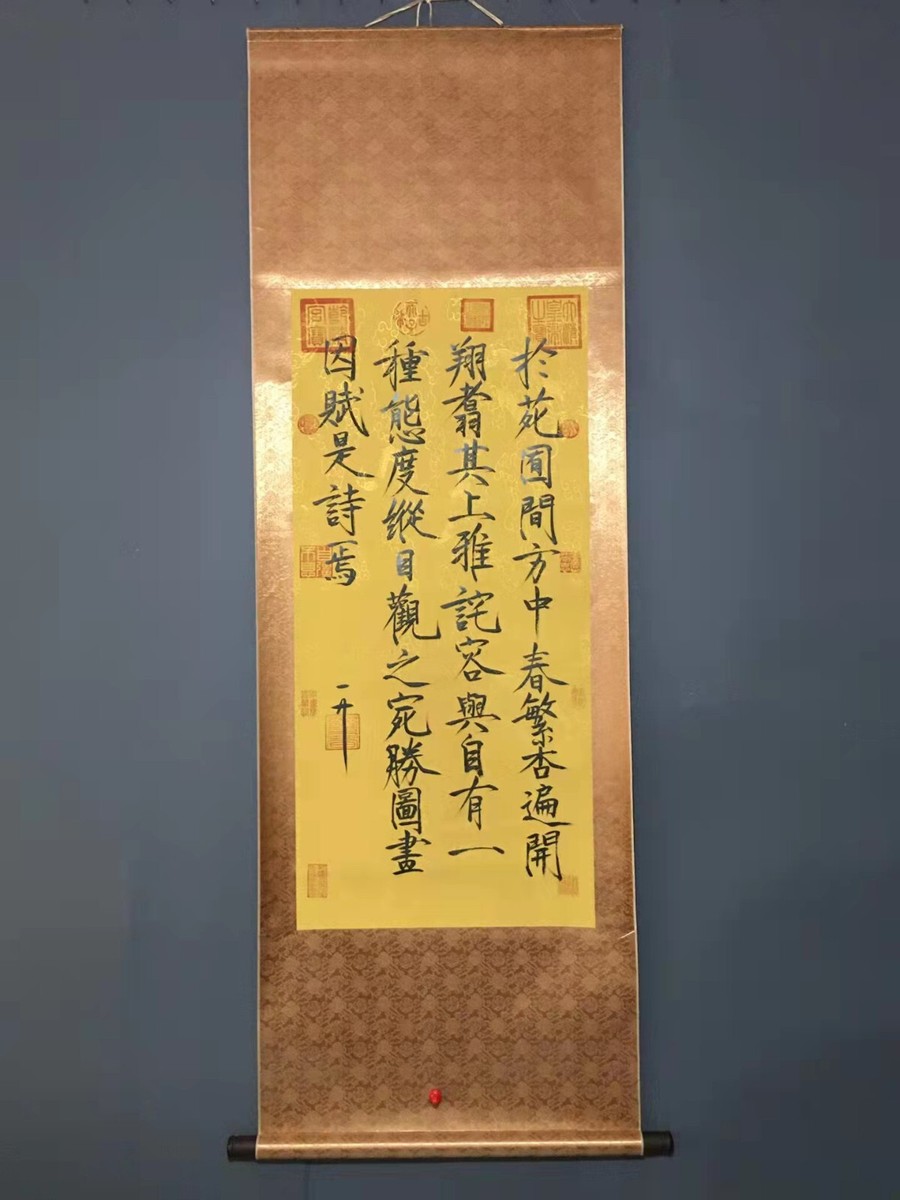 於苑囿間方中春繁杏遍開
翔翥其上雅詫容與自有一
種態度縱目觀之宛勝圖畫
因賦是詩焉